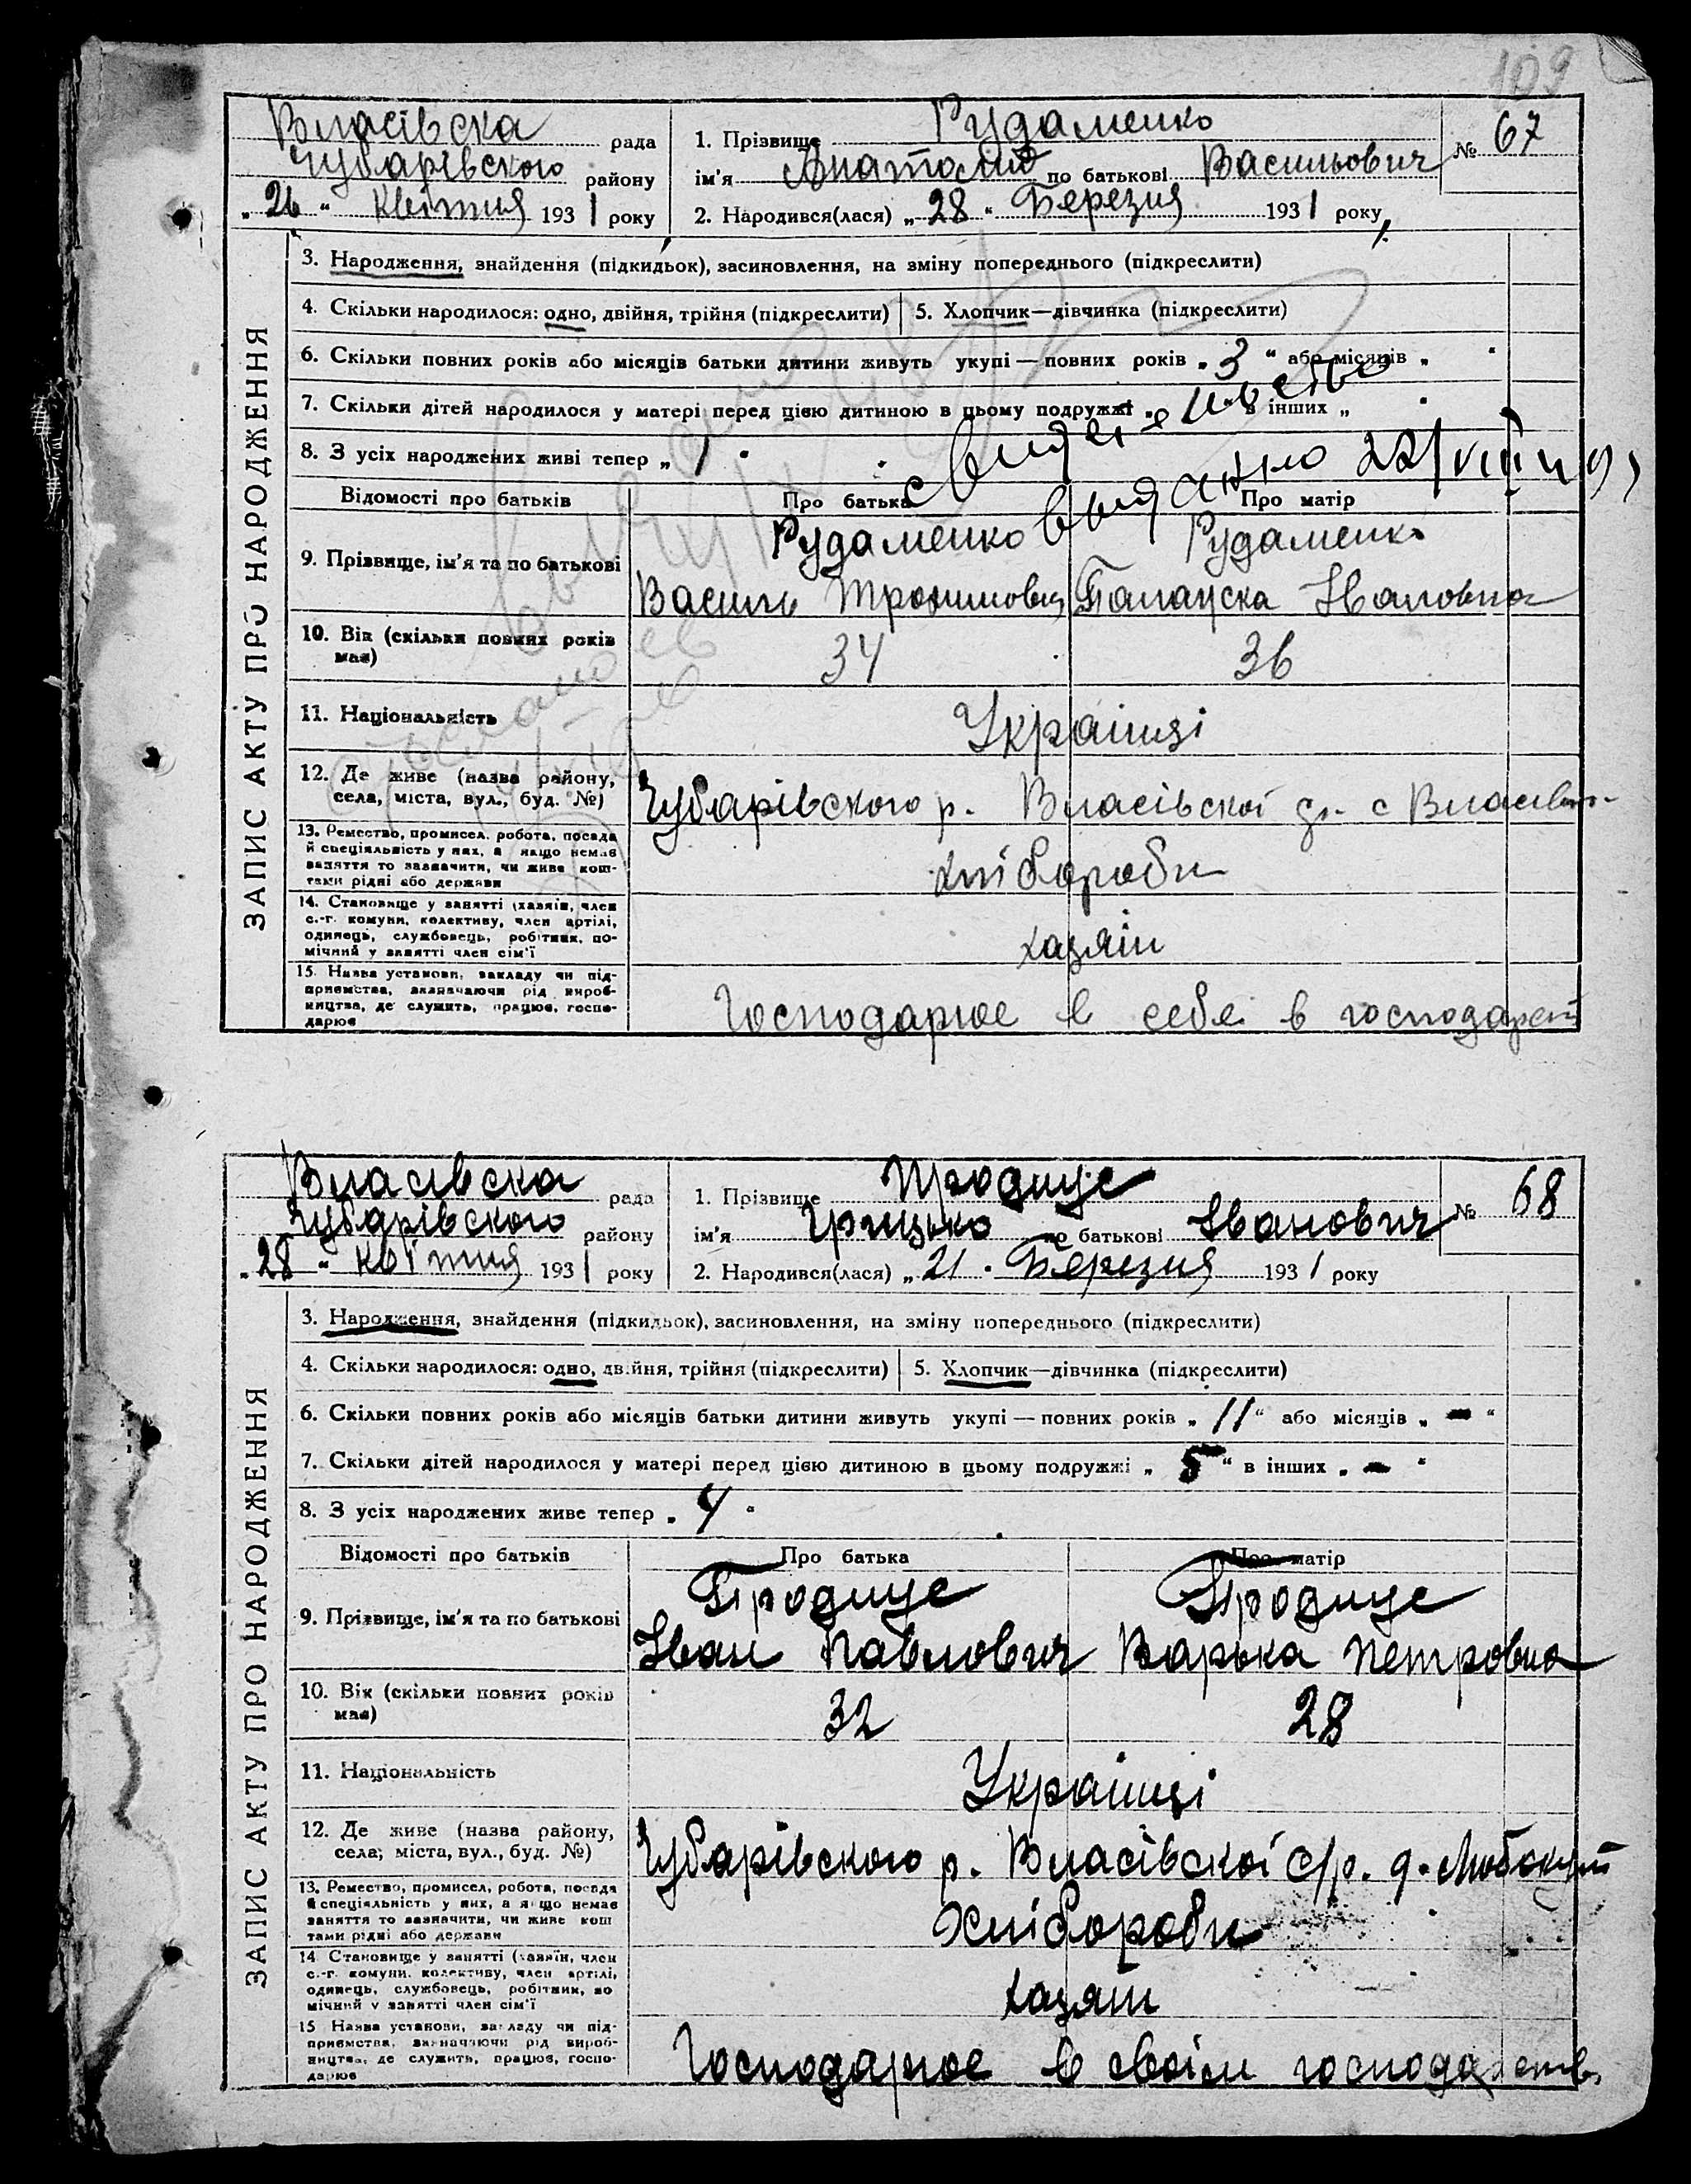 109
Власівска рада
Чубарівського району
„ 26 “ Квітня 1931 року
1. Прізвище Рудаменко
ім'я Анатолий по батькові Васильович
2. Народився(лася) „ 28 “ Березня 1931 року
№ 67
ЗАПИС АКТУ ПРО НАРОДЖЕННЯ
3. Народження, знайдення (підкидьок), засиновлення, на зміну попереднього (підкреслити)
4. Скільки народилося: одно, двійня, трійня (підкреслити) 5. Хлопчик—дівчинка (підкреслити)
6. Скільки повних років або місяців батьки дитини живуть укупі — повних років „ 3 “ або місяців „ “
7. Скільки дітей народилося у матері перед цією дитиною в цьому подружжі „ “ в інших „ “
8. З усіх народжених живі тепер „ 1 “
выдано 22/VIII
Відомості про батьків Про батька Про матір
9. Прізвище, ім'я та по батькові
Рудаменко Рудаменко
Василь Трохимович Ивановна
10. Вік (скільки повних років має) 34 36
11. Національність Українці
12. Де живе (назва району, села, міста, вул., буд. №)
Чубарівского р. Власівскої с Власівка
13. Ремество, промисел, робота, посада й спеціяльність у них, а якщо немає заняття то зазначити, чи живе коштами рідні або держави
хлібороби
14. Становище у занятті (хазяїн, член с.-г. комуни, колективу, член артілі, одинець, службовець, робітник, помічний у занятті член сім'ї
хазяїн
15. Назва установи, закладу чи підприємства, зазначаючи рід виробництва, де служить, працює, господарює
Господарює в себе в господарст
Власівска рада
Чубарівского району
„ 28 “ квітня 1931 року
1. Прізвище Продиус
ім'я Грицько по батькові Іванович
2. Народився(лася) „ 21 “ Березня 1931 року
№ 68
ЗАПИС АКТУ ПРО НАРОДЖЕННЯ
3. Народження, знайдення (підкидьок), засиновлення, на зміну попереднього (підкреслити)
4. Скільки народилося: одно, двійня, трійня (підкреслити) 5. Хлопчик—дівчинка (підкреслити)
6. Скільки повних років або місяців батьки дитини живуть укупі — повних років „ 11 “ або місяців „ – “
7. Скільки дітей народилося у матері перед цією дитиною в цьому подружжі „ 5 “ в інших „ – “
8. З усіх народжених живе тепер „ 4 “
Відомості про батьків Про батька Про матір
9. Прізвище, ім'я та по батькові
Продиус Продиус
Іван Павлович Варька Петровна
10. Вік (скільки повних років має) 32 28
11. Національність Українці
12. Де живе (назва району, села, міста, вул., буд. №)
Чубарівского р. Власівскої с/р.
13. Ремество, промисел, робота, посада й спеціяльність у них, а якщо немає заняття то зазначити, чи живе коштами рідні або держави
Хлібороби
14. Становище у занятті (хазяїн, член с.-г. комуни, колективу, член артілі, одинець, службовець, робітник, помічний у занятті член сім'ї
хазяїн
15. Назва установи, закладу чи підприємства, зазначаючи рід виробництва, де служить, працює, господарює
Господарює в своїм господарстві